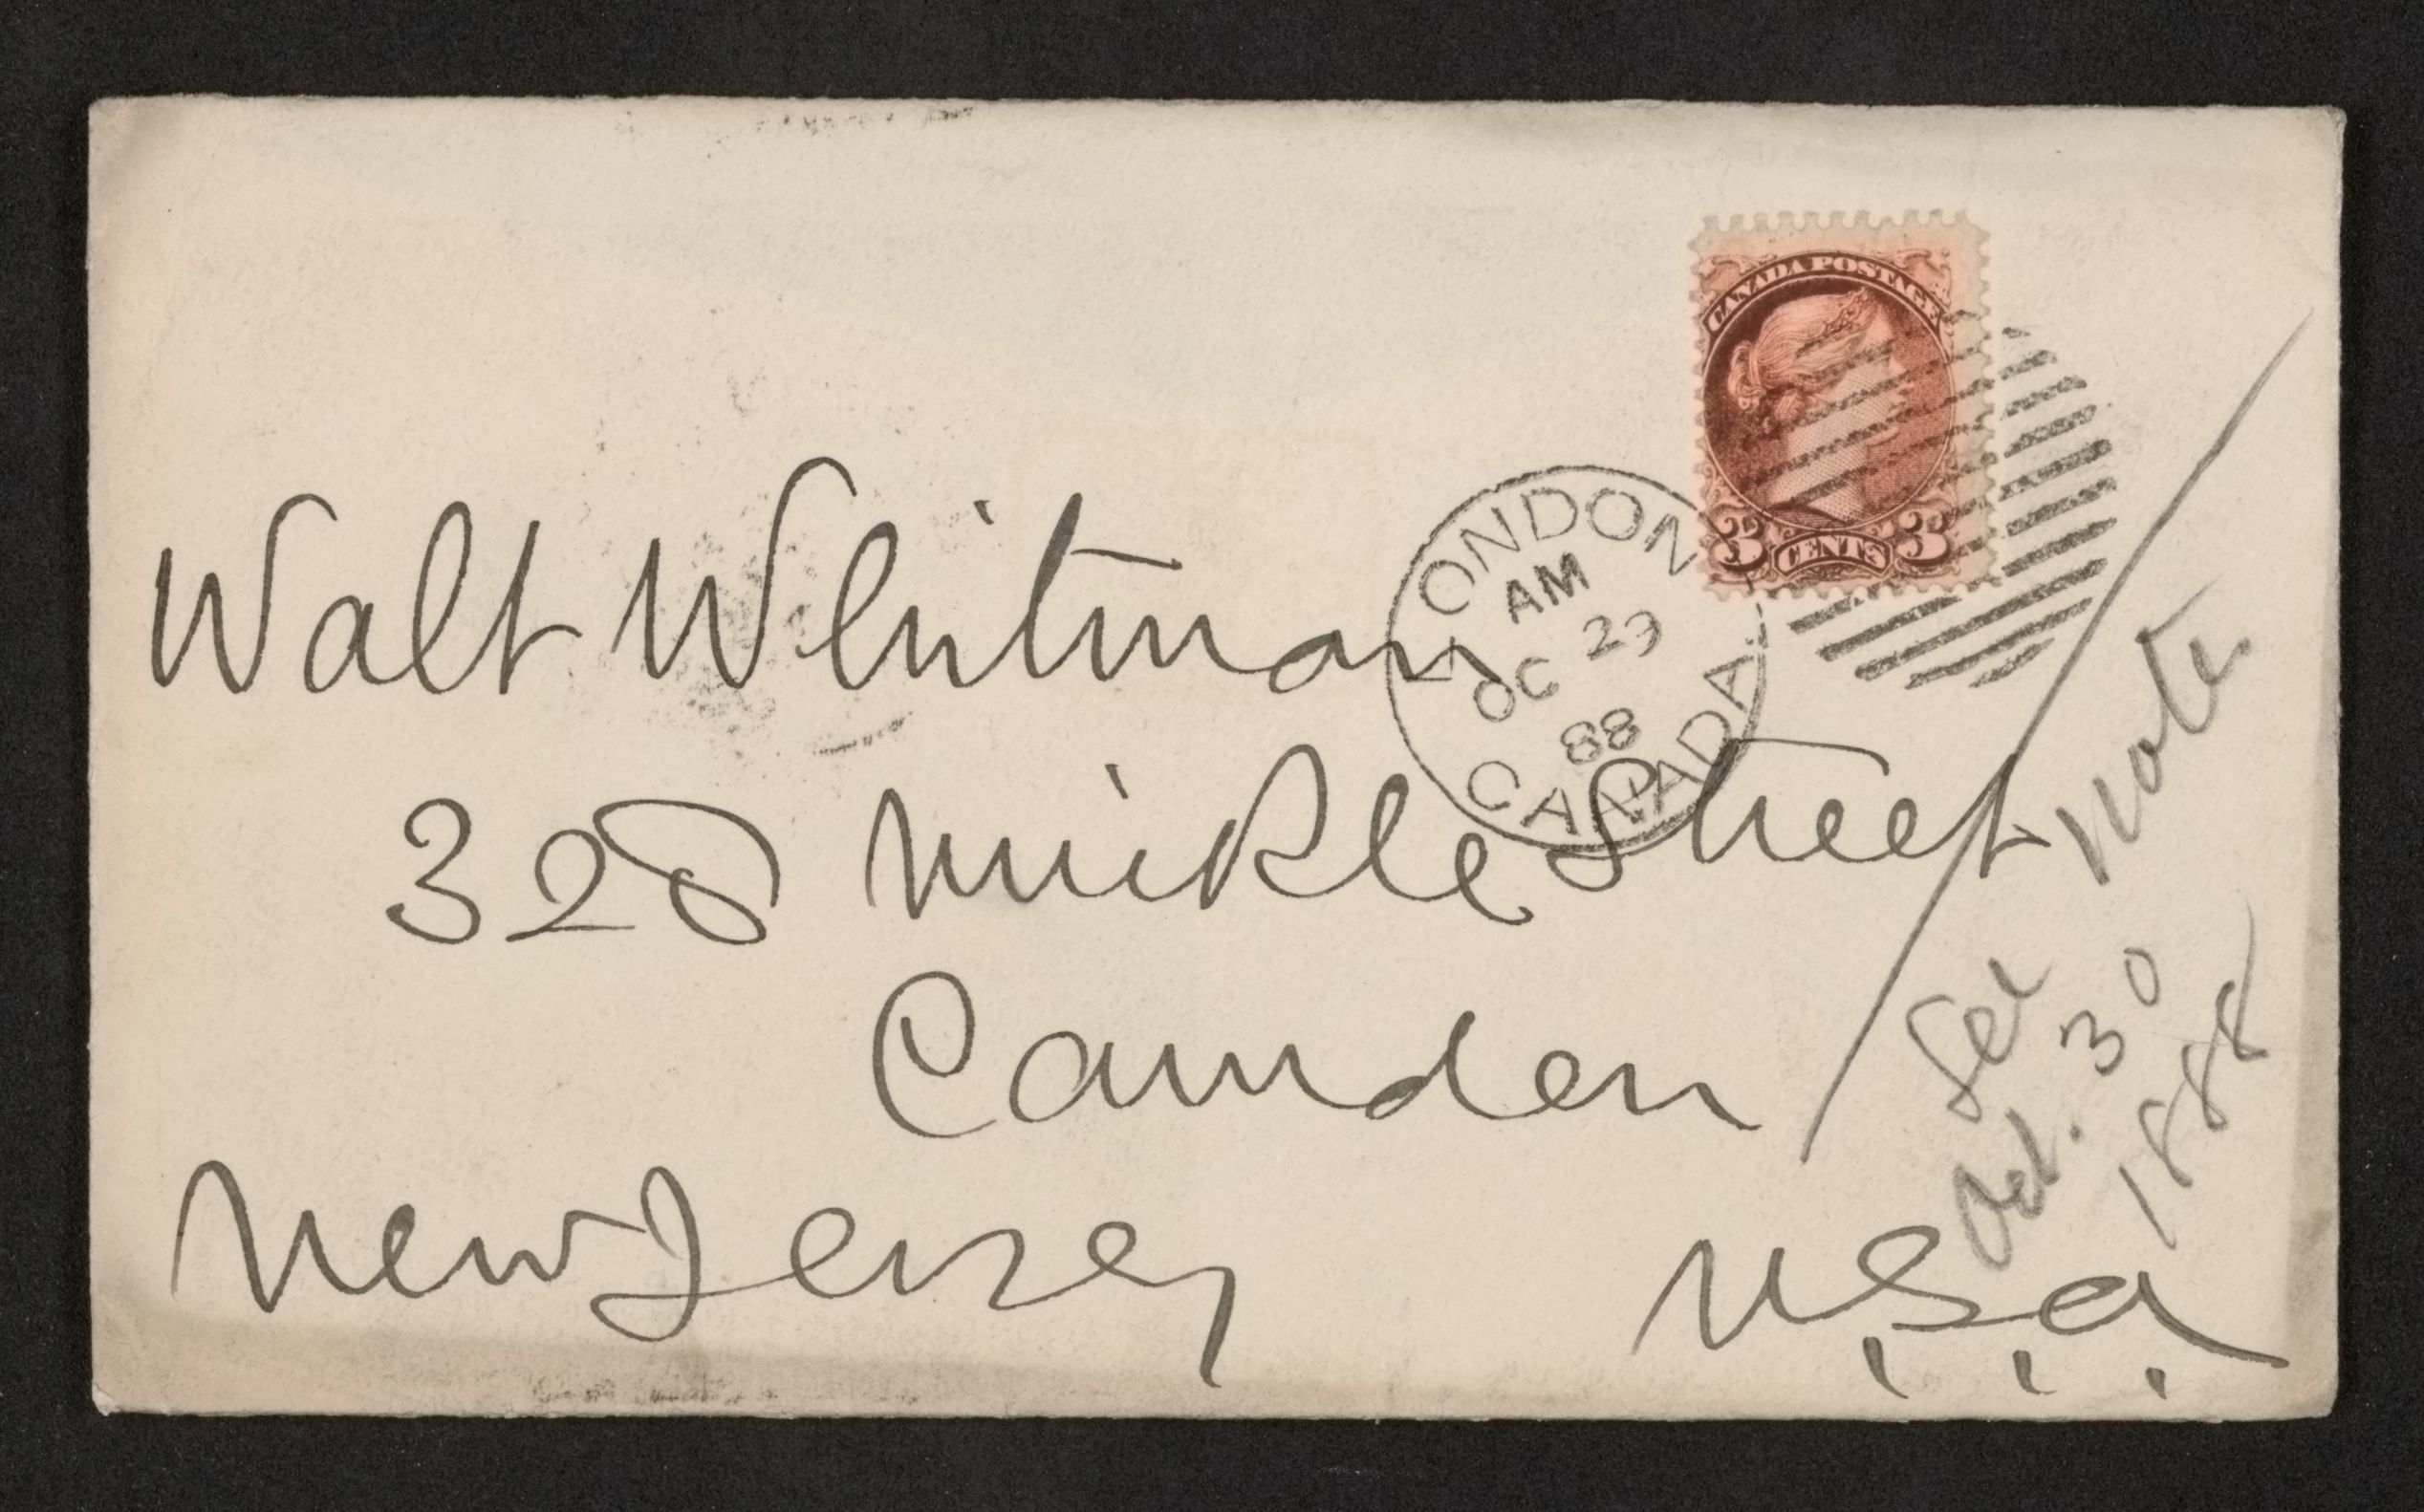 CANADA POSTAGE
3 CENTS 3
LONDON
AM
OC 29
88
CANADA
Walt Whitman
328 Mickle Street
Camden
New Jersey
U.S.A.
See note
Oct. 30
1888